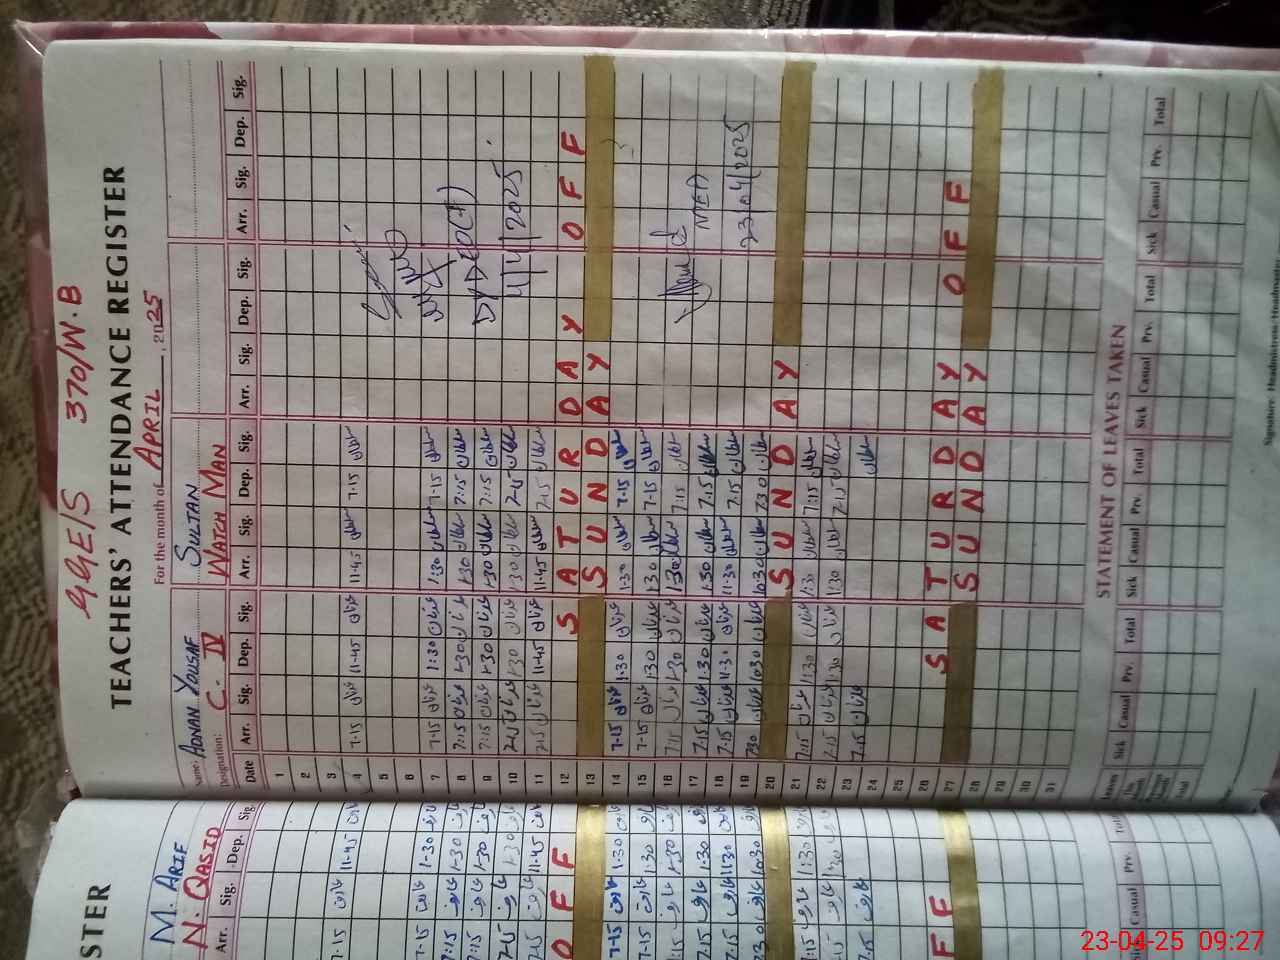 GGE/S 370/W.B
TEACHERS' ATTENDANCE REGISTER
For the month of APRIL, 2025
Name: ADNAN YOUSAF SULTAN
Designation: C-IV WATCH MAN
Date Arr. Sig. Dep. Sig. Arr. Sig. Dep. Sig. Arr. Sig. Dep. Sig. Arr. Sig. Dep. Sig.
1
2
3
4 7-15 عدنان 11-45 عدنان 11-45 سلطان 7-15 سلطان
5
6
7 7-15 عدنان 1:30 عدنان 1:30 سلطان 7-15 سلطان
8 7:15 عدنان 1-30 عدنان 1-30 سلطان 7:15 سلطان
9 7:15 عدنان 1-30 عدنان 1-30 سلطان 7:15 سلطان
10 عدنان 1-30 عدنان 1-30 سلطان سلطان
11 عدنان 11-45 عدنان 11-45 سلطان سلطان
4/4/2025
12 SATURDAY OFF
13 SUNDAY
14 7-15 عدنان 1-30 عدنان 1-30 سلطان 7-15 سلطان
15 7-15 عدنان 1-30 عدنان 1-30 سلطان 7-15 سلطان
16 7:15 عدنان 1-30 عدنان 1:30 سلطان 7:15 سلطان
17 7:15 عدنان 1-30 عدنان 1-30 سلطان 7:15 سلطان
18 7:15 عدنان 11-30 عدنان 11-30 سلطان 7:15 سلطان
19 730 عدنان 10:30 عدنان 10:30 سلطان 730 سلطان
MEA
23/04/2025
20 SUNDAY
21 7:15 عدنان 1:30 عدنان 1:30 سلطان 7:15 سلطان
22 7:15 عدنان 1:30 عدنان 1:30 سلطان 7:15 سلطان
23 7.15 عدنان سلطان
24
25
26 SATURDAY OFF
27 SUNDAY
28
29
30
31
STATEMENT OF LEAVES TAKEN
Leaves Sick Casual Prv. Total Sick Casual Prv. Total Sick Casual Prv. Total Sick Casual Prv. Total
Total
STER
M. ARIF
N. QASID
Arr. Sig. Dep. Sig.
7-15 عارف 11-45 عارف
7-15 عارف 1-30 عارف
7:15 عارف 1-30 عارف
7:15 عارف 1-30 عارف
عارف 1-30 عارف
عارف 11-45 عارف
OFF
7-15 عارف 1-30 عارف
7-15 عارف 1:30 عارف
عارف 1-30 عارف
7:15 عارف 1-30 عارف
7:15 عارف 11:30 عارف
عارف 10:30 عارف
عارف 1:30 عارف
عارف 1:30 عارف
7.15 عارف
FF
Casual Prv. Total
23-04-25 09:27